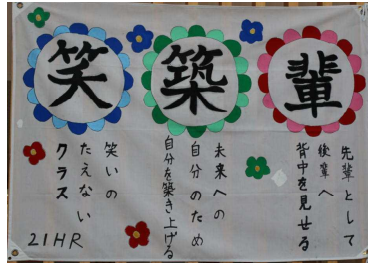 輩
築
笑
先輩として
後輩へ
背中を見せる
未来への
自分のため
自分を築き上げる
笑いの
たえない
クラス
21HR